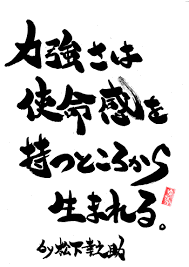 力強さは
使命感を
持つところから
生まれる。
by松下幸之助